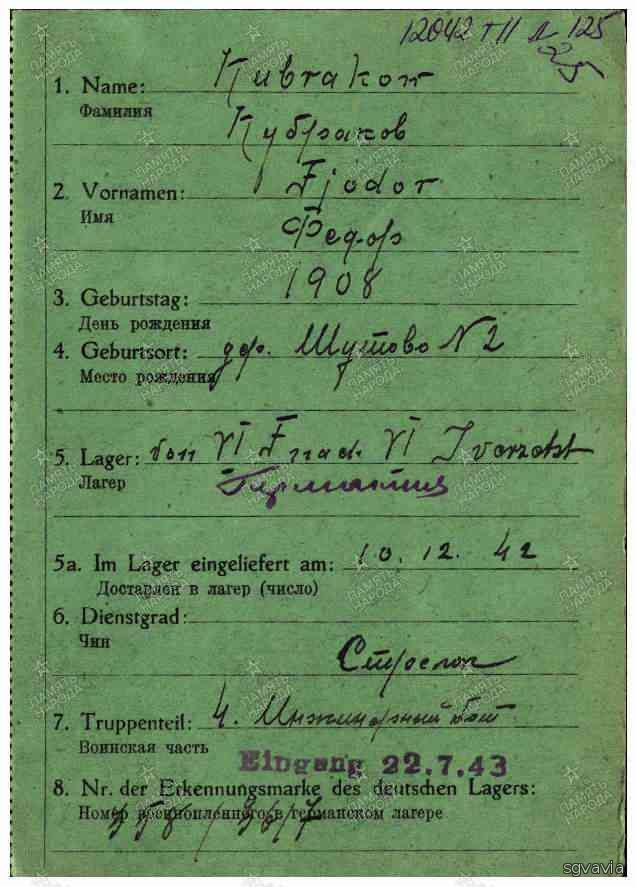 12042 т11 л 125
1. Name: Kubrakow
Фамилия
Кубраков
2. Vornamen: Fjodor
Имя
Федор
3. Geburtstag: 1908
День рождения
4. Geburtsort: дер. Шутово N 2
Место рождения
5. Lager: von VI F nach VI
Лагер
Германия
5a. Im Lager eingeliefert am: 10. 12. 42
Доставлен в лагер (число)
6. Dienstgrad:
Чин
7. Truppenteil: 4.
Воинская часть
Eingang 22.7.43
8. Nr. der Erkennungsmarke des deutschen Lagers:
Номер военнопленного в германском лагере
ПАМЯТЬ НАРОДА
sgvavia